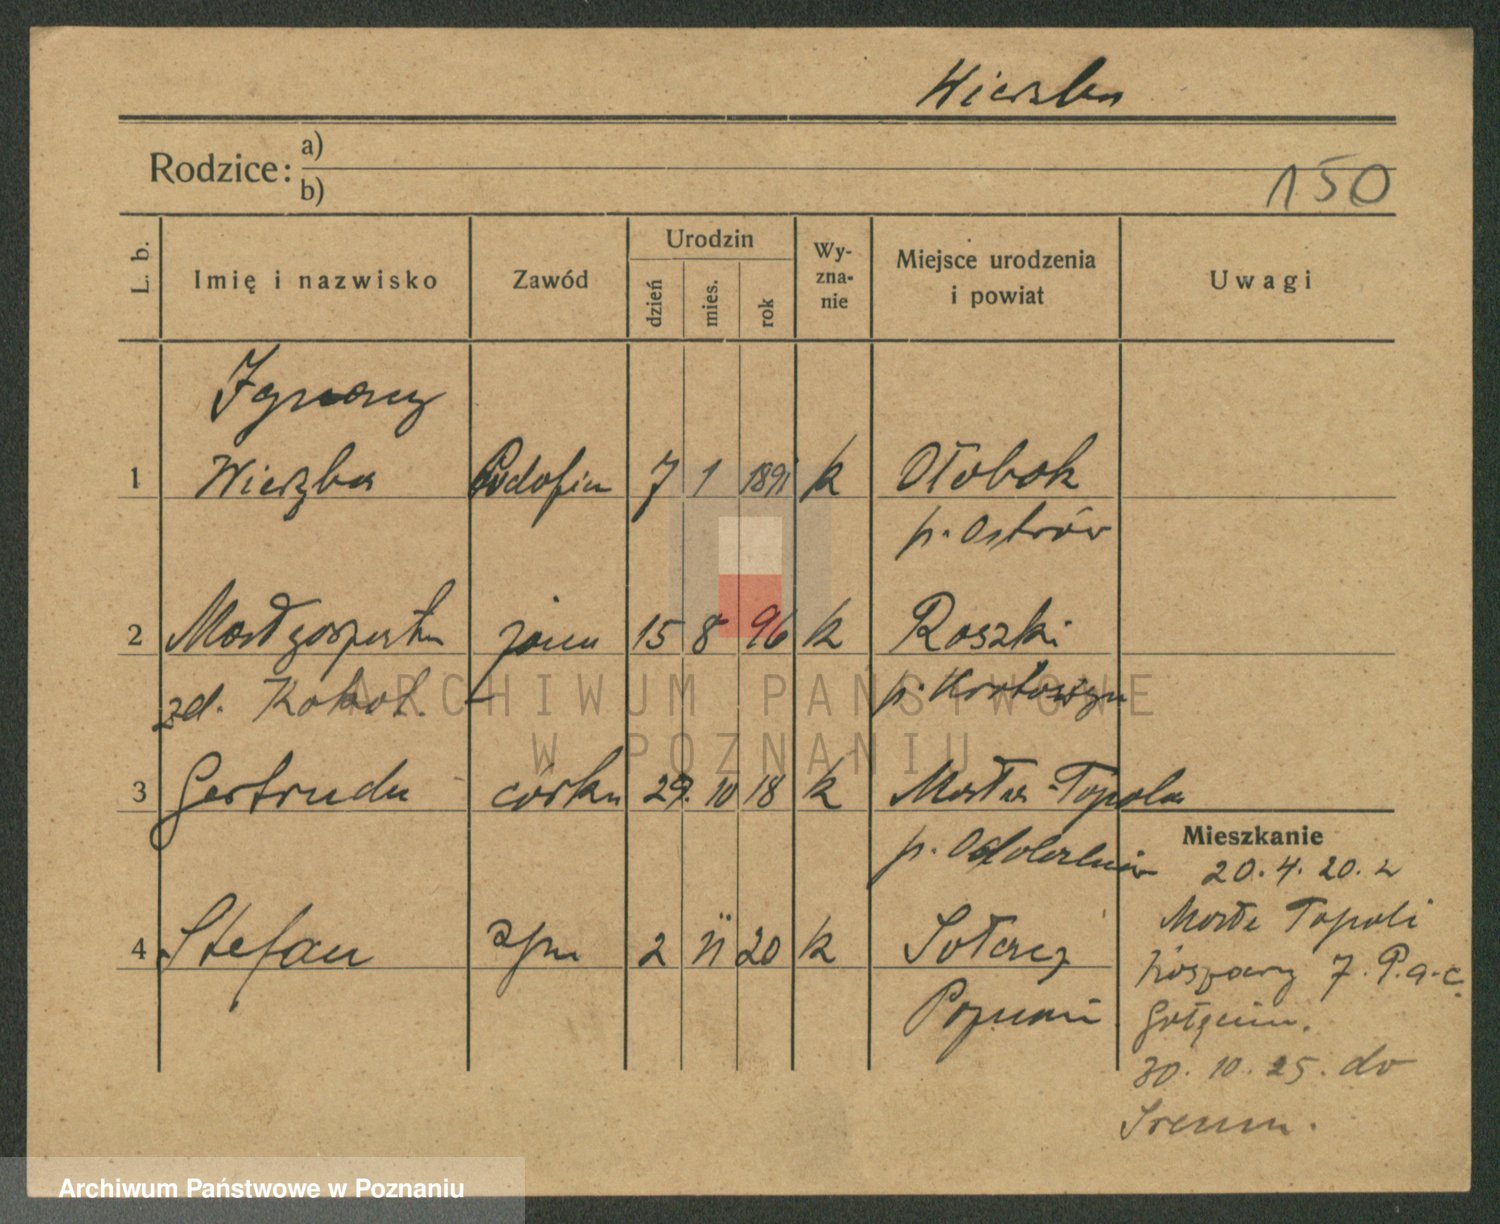 Wierzba
Rodzice: a)
b)
150
L. b.
Imię i nazwisko
Zawód
Urodzin
dzień
mies.
rok
Wy-
zna-
nie
Miejsce urodzenia
i powiat
Uwagi
Ignacy
1 Wierzba 7 1 1891 k Ołobok
p. Ostrów
2 Małgorzata żona 15 8 96 k Roszki
zd. p. Krotoszyn
3 Gertruda córka 29. 10 18 k Mała-Topola
p. Odolanów
Mieszkanie
20. 4. 20. z
Małe Topoli
4 Stefan syn 2 11 20 k Sołacz
Koszary 7. P.a.c.
Poznań
Gołęcin.
30. 10. 25. do
Śremu.
ARCHIWUM PAŃSTWOWE
W POZNANIU
Archiwum Państwowe w Poznaniu